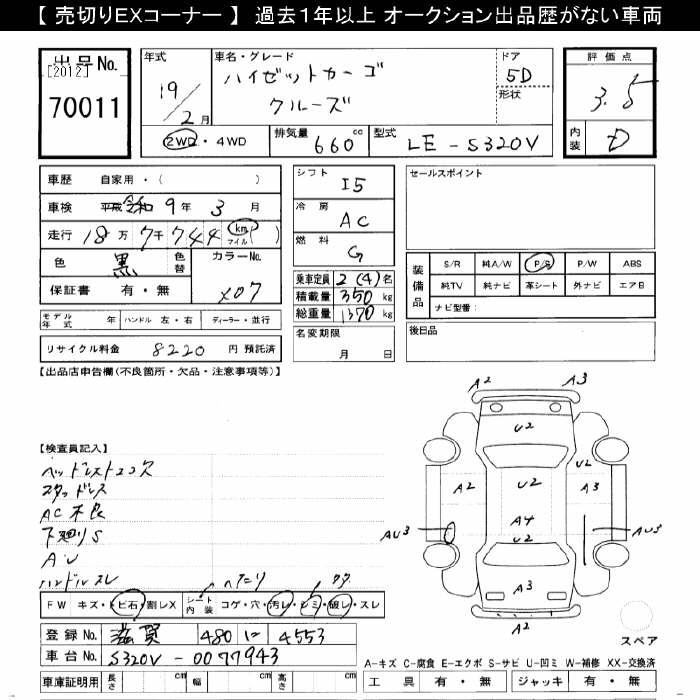 【 売切りEXコーナー 】 過去1年以上 オークション出品歴がない車両
出品No.
[2012]
70011
年式
19/2月
車名・グレード
ハイゼットカーゴ
クルーズ
ドア
5D
形状
評価点
3.5
内装
D
2WD・4WD
排気量 660cc
型式 LE-S320V
車歴 自家用・( )
車検 平成 令和 9年 3月
走行 18万7千744 km マイル ( )
色 黒 色替
カラーNo.
X07
保証書 有・無
モデル年式 年
ハンドル 左・右
ディーラー・並行
リサイクル料金 8220 円 預託済
シフト
I5
冷房
AC
燃料
G
乗車定員 2(4)名
積載量 350kg
総重量 1370kg
名変期限
月 日
セールスポイント
装備品
S/R 純A/W P/S P/W ABS
純TV 純ナビ 革シート 外ナビ エアB
ナビ型番:
後日品
【出品店申告欄(不良箇所・欠品・注意事項等)】
【検査員記入】
ヘッドレスト2コ欠
スタッドレス
AC不良
下廻りS
AU
ハンドルスレ
ヘタリ
FW キズ・トビ石・割レX
シート内装 コゲ・穴・汚レ・シミ・破レ・スレ
登録No. 滋賀 480 い 4553
車台No. S320V-0077943
車庫証明用 長さ cm 幅 cm 高さ cm
A2 A3
U2
U2
A2 U2 A3
AU3 A4 AU3
U2
A3
A2
スペア
A-キズ C-腐食 E-エクボ S-サビ U-凹ミ W-補修 XX-交換済
工具 有・無 ジャッキ 有・無